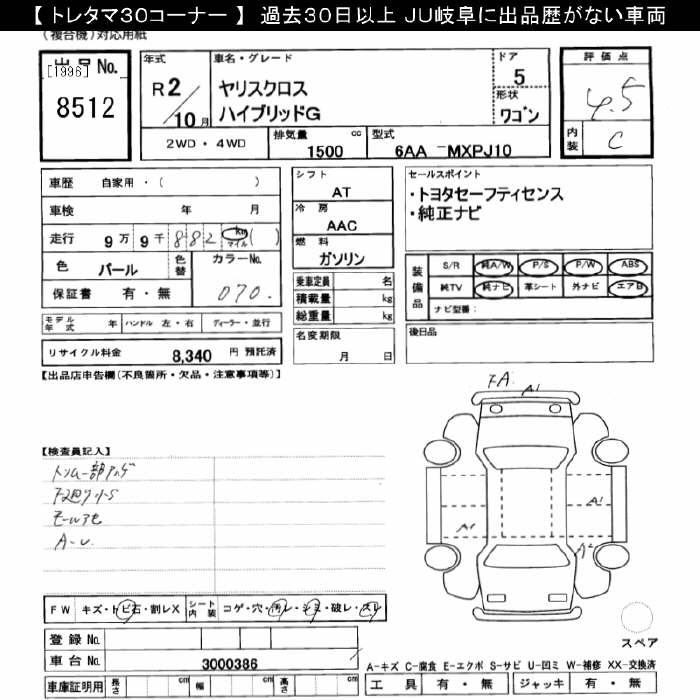 【 トレタマ30コーナー 】 過去30日以上 JU岐阜に出品歴がない車両
(複合機)対応用紙
出品No.
[1996]
8512
年式
R2/10月
車名・グレード
ヤリスクロス
ハイブリッドG
ドア
5
形状
ワゴン
2WD・4WD
排気量 cc
1500
型式
6AA -MXPJ10
評価点
4.5
内装
C
車歴 自家用・( )
車検 年 月
走行 9万9千882 km マイル ( )
色 パール 色替
カラーNo.
070.
保証書 有・無
モデル年式 年 ハンドル 左・右 ディーラー・並行
リサイクル料金 8,340 円 預託済
シフト
AT
冷房
AAC
燃料
ガソリン
乗車定員 名
積載量 kg
総重量 kg
名変期限
月 日
セールスポイント
・トヨタセーフティセンス
・純正ナビ
装備品
S/R 純A/W P/S P/W ABS
純TV 純ナビ 革シート 外ナビ エアB
ナビ型番:
後日品
【出品店申告欄(不良箇所・欠品・注意事項等)】
【検査員記入】
A-U.
FA.
A1
A1
A1
A2
FW キズ・トビ石・割レX
シート内装 コゲ・穴・汚レ・シミ・破レ・スレ
登録No.
車台No. 3000386
車庫証明用 長さ cm 幅 cm 高さ cm
スペア
A-キズ C-腐食 E-エクボ S-サビ U-凹ミ W-補修 XX-交換済
工具 有・無 ジャッキ 有・無